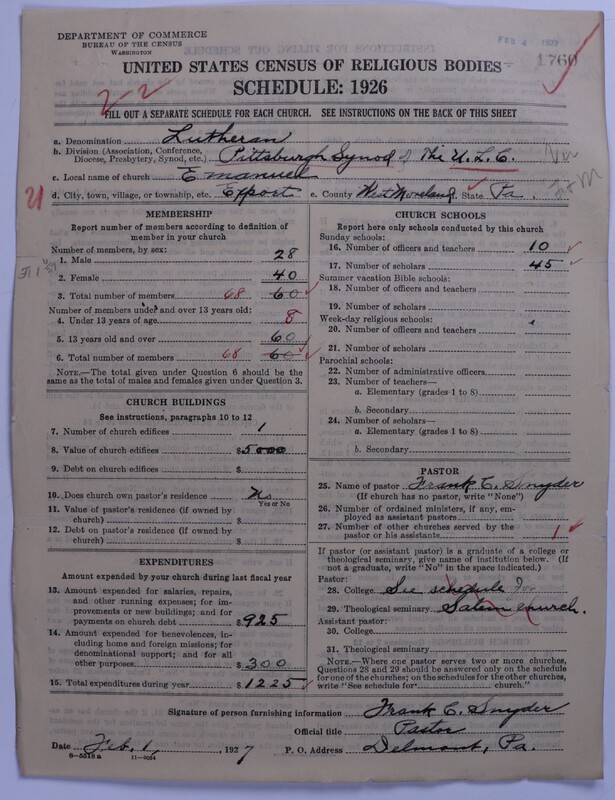 DEPARTMENT OF COMMERCE
BUREAU OF THE CENSUS
WASHINGTON
FEB 4 1927
1760
UNITED STATES CENSUS OF RELIGIOUS BODIES
SCHEDULE: 1926
22
FILL OUT A SEPARATE SCHEDULE FOR EACH CHURCH. SEE INSTRUCTIONS ON THE BACK OF THIS SHEET
a. Denomination Lutheran
b. Division (Association, Conference, Diocese, Presbytery, Synod, etc.) Pittsburgh Synod of The U.L.C.
c. Local name of church Emanuel
d. City, town, village, or township, etc. Export e. County Westmoreland, State Pa.
MEMBERSHIP
Report number of members according to definition of
member in your church
Number of members, by sex:
1. Male 28
2. Female 40
3. Total number of members 68 60
Number of members under and over 13 years old:
4. Under 13 years of age 8
5. 13 years old and over 60
6. Total number of members 68 60
NOTE.—The total given under Question 6 should be the
same as the total of males and females given under Question 3.
CHURCH BUILDINGS
See instructions, paragraphs 10 to 12
7. Number of church edifices 1
8. Value of church edifices $5000
9. Debt on church edifices $
10. Does church own pastor's residence No
Yes or No
11. Value of pastor's residence (if owned by
church) $
12. Debt on pastor's residence (if owned by
church) $
EXPENDITURES
Amount expended by your church during last fiscal year
13. Amount expended for salaries, repairs,
and other running expenses; for im-
provements or new buildings; and for
payments on church debt $925
14. Amount expended for benevolences, in-
cluding home and foreign missions; for
denominational support; and for all
other purposes $300
15. Total expenditures during year $1225
CHURCH SCHOOLS
Report here only schools conducted by this church
Sunday schools:
16. Number of officers and teachers 10
17. Number of scholars 45
Summer vacation Bible schools:
18. Number of officers and teachers
19. Number of scholars
Week-day religious schools:
20. Number of officers and teachers
21. Number of scholars
Parochial schools:
22. Number of administrative officers
23. Number of teachers—
a. Elementary (grades 1 to 8)
b. Secondary
24. Number of scholars—
a. Elementary (grades 1 to 8)
b. Secondary
PASTOR
25. Name of pastor Frank C. Snyder
(If church has no pastor, write "None")
26. Number of ordained ministers, if any, em-
ployed as assistant pastors
27. Number of other churches served by the
pastor or his assistants 1
If pastor (or assistant pastor) is a graduate of a college or
theological seminary, give name of institution below. (If
not a graduate, write "No" in the space indicated.)
Pastor:
28. College See schedule for
29. Theological seminary Salem church.
Assistant pastor:
30. College
31. Theological seminary
NOTE.—Where one pastor serves two or more churches,
Questions 28 and 29 should be answered only on the schedule
for one of the churches; on the schedules for the other churches,
write "See schedule for church."
Signature of person furnishing information Frank C. Snyder
Official title Pastor
Date Feb. 1, 1927 P. O. Address Delmont, Pa.
8-5518a 11-9024